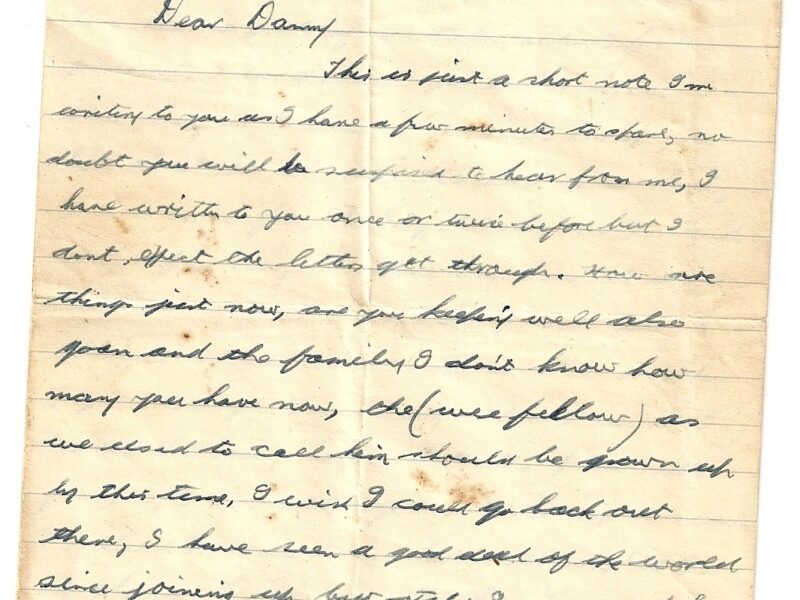 Dear Danny
This is just a short note I'm
writing to you as I have a few minutes to spare, no
doubt you will be surprised to hear from me, I
have written to you once or twice before but I
dont, expect the letters got through. How are
things just now, are you keeping well also
and the family I don't know how
many you have now, the (wee fellow) as
we used to call him should be grown up
by this time, I wish I could go back out
there, I have seen a good deal of the world
since joining up but